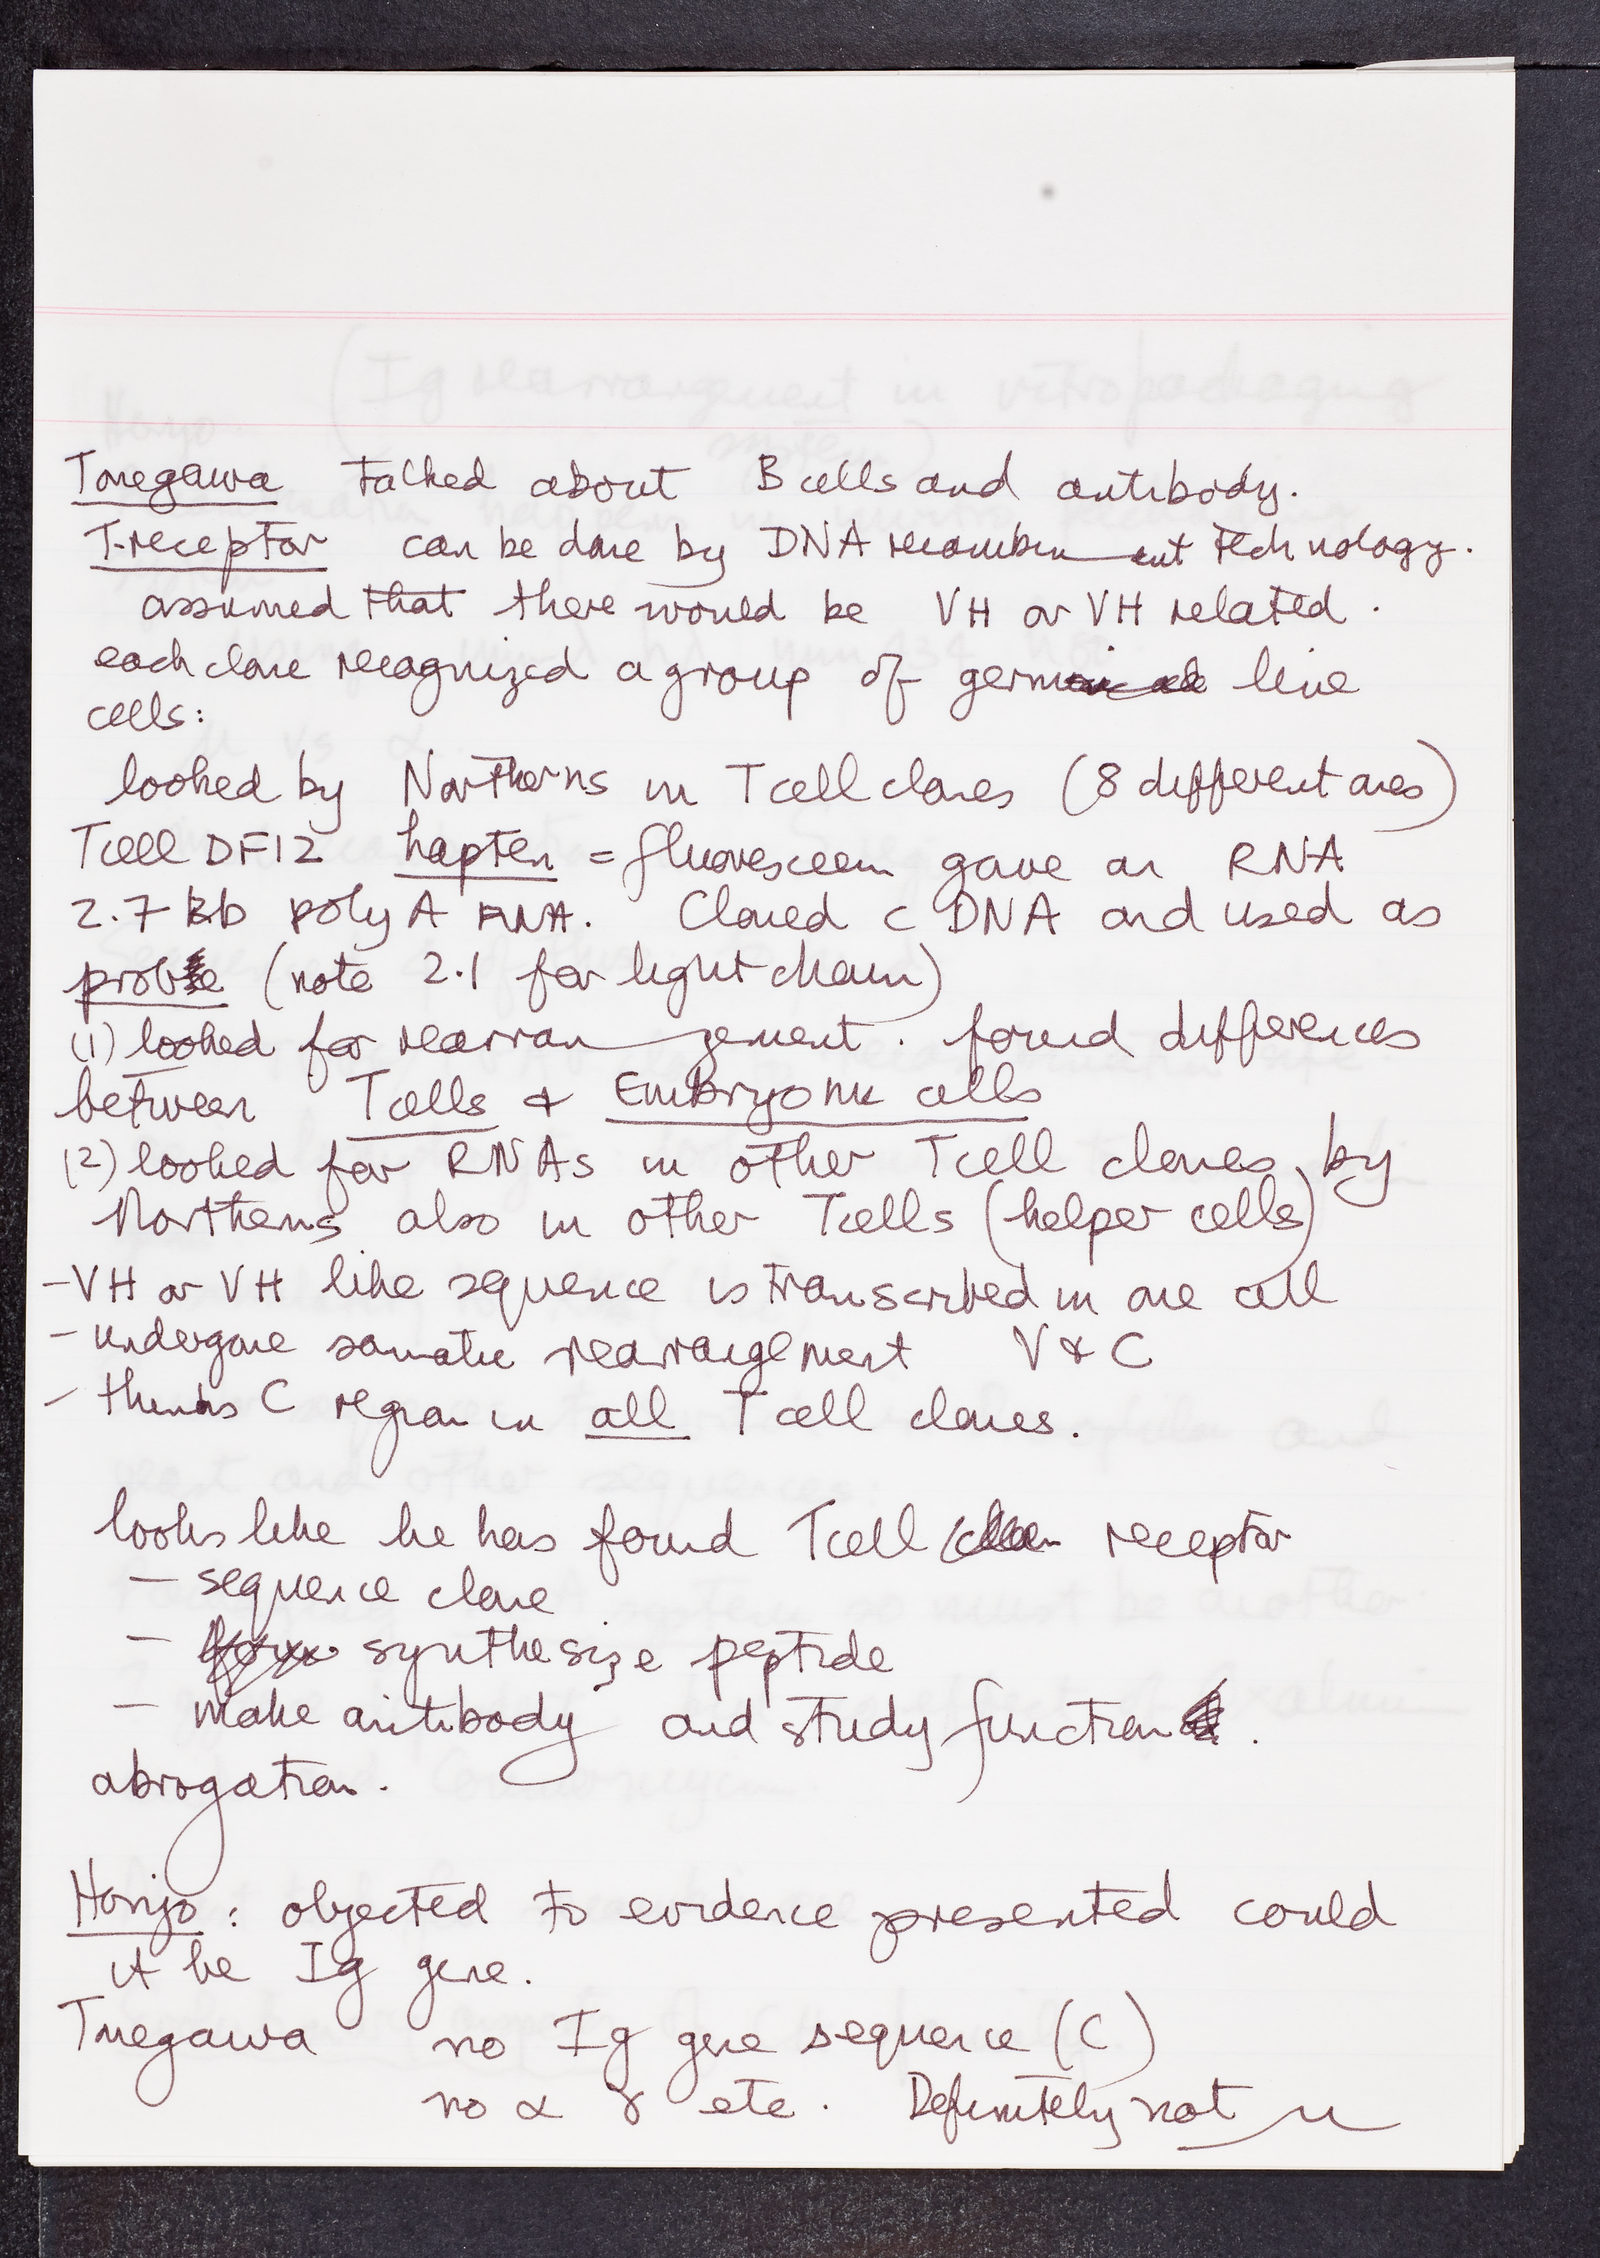 Tonegawa talked about B cells and antibody.
T-receptor can be done by DNA recombinent technology.
assumed that there would be VH or VH related.
each clone recognized a group of germ line
cells:
looked by Northerns in T cell clones (8 different ones)
T cell DF12 hapten = fluorescein gave an RNA
2.7 kb poly A RNA. Cloned c DNA and used as
probe (note 2.1 for light chain)
(1) looked for rearrangement. found differences
between T cells & Embryonic cells
(2) looked for RNAs in other T cell clones by
Northerns also in other T cells (helper cells)
- VH or VH like sequence is transcribed in one cell
- undergone somatic rearrangement V & C
- thinks C region in all T cell clones.
looks like he has found T cell receptor
- sequence clone
- synthesize peptide
- make antibody and study function.
abrogation.
Honjo: objected to evidence presented could
it be Ig gene.
Tonegawa no Ig gene sequence (C)
no α γ etc. Definitely not μ